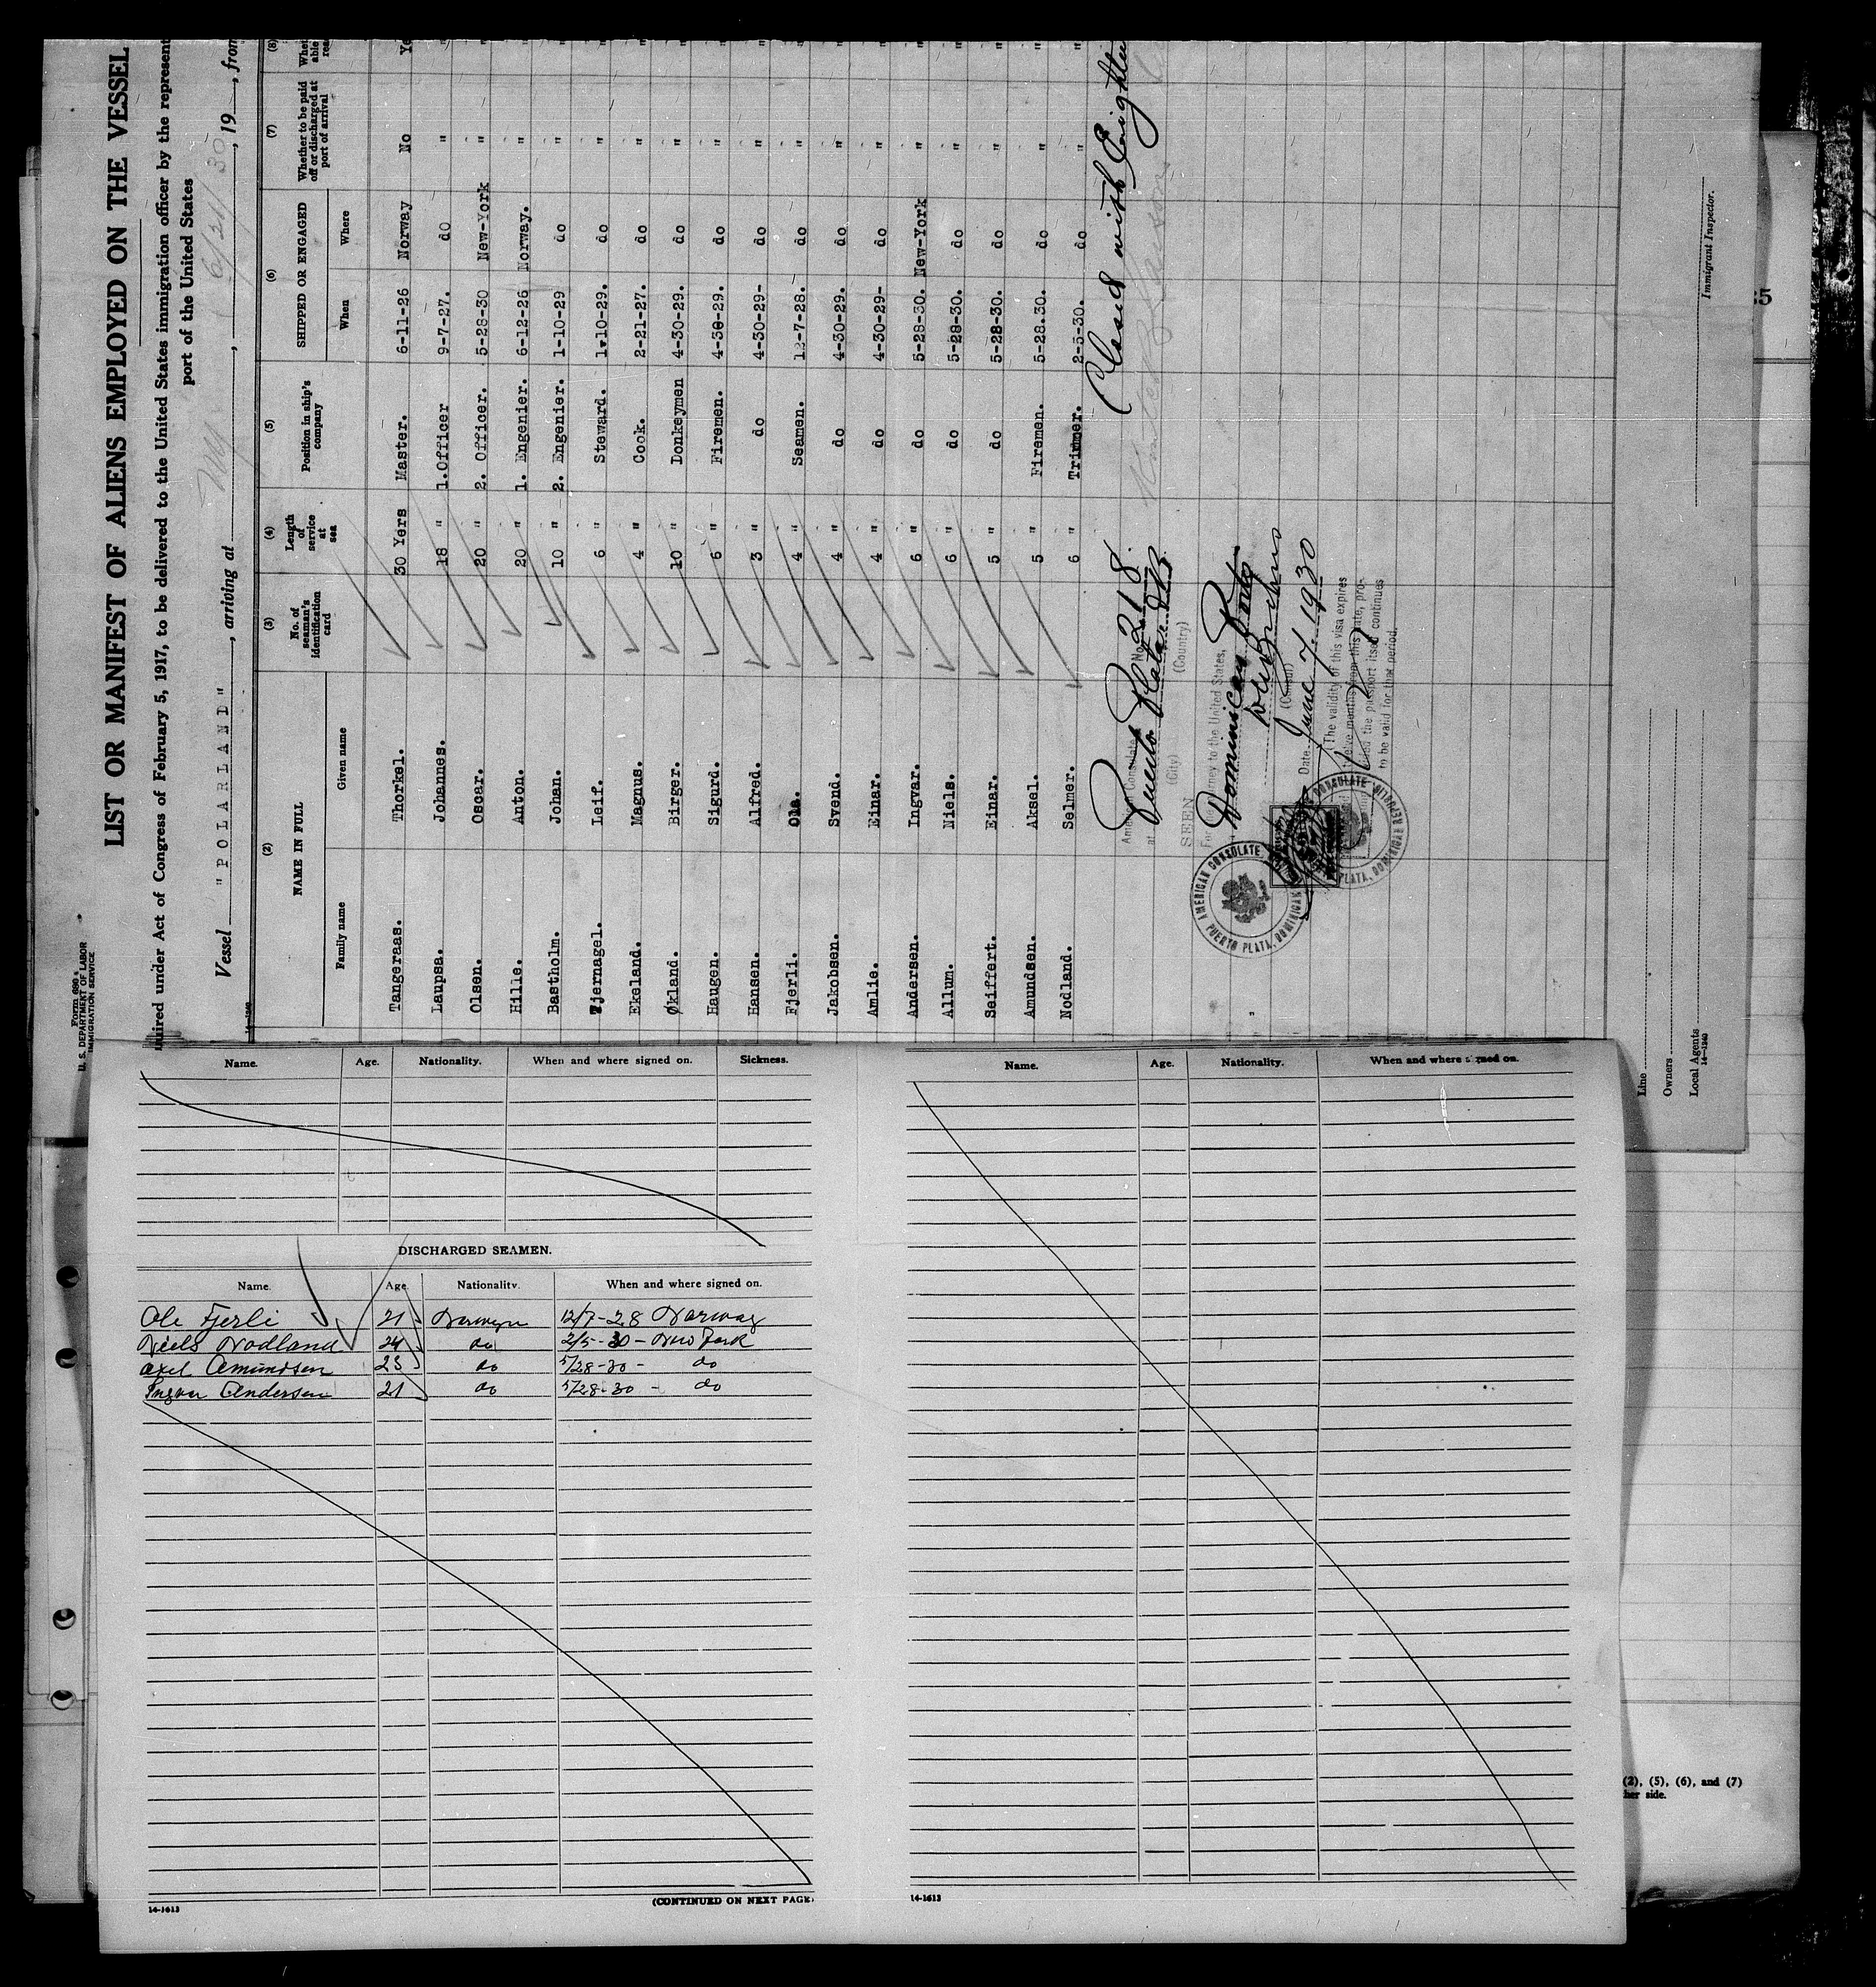 Form 680
U. S. DEPARTMENT OF LABOR
IMMIGRATION SERVICE
LIST OR MANIFEST OF ALIENS EMPLOYED ON THE VESSEL
uired under Act of Congress of February 5, 1917, to be delivered to the United States immigration officer by the represent
port of the United States
Vessel "POLARLAND", arriving at NY, 6/24/30, 19, from
14-1240
(2) (3) (4) (5) (6) (7) (8)
NAME IN FULL No. of seaman's identification card Length of service at sea Position in ship's company SHIPPED OR ENGAGED Whether to be paid off or discharged at port of arrival
Family name Given name When Where
Tangeraas. Thorkel. 30 Yers Master. 6-11-26 Norway No Ye
Laupsa. Johannes. 18 " 1.Officer 9-7-27. do " "
Olsen. Oscar. 20 " 2. Officer. 5-28-30 New-York " "
Hille. Anton. 20 " 1. Engenier. 6-12-26 Norway. " "
Bastholm. Johan. 10 " 2. Engenier. 1-10-29 do " "
Tjernagel. Leif. 6 " Steward. 1-10-29. do " "
Ekeland. Magnus. 4 " Cook. 2-21-27. do " "
Økland. Birger. 10 " Donkeymen 4-30-29. do " "
Haugen. Sigurd. 6 " Firemen. 4-30-29. do " "
Hansen. Alfred. 3 " do 4-30-29- do " "
Fjerli. Ola. 4 " Seamen. 12-7-28. do " "
Jakobsen. Svend. 4 " do 4-30-29. do " "
Amlie. Einar. 4 " do 4-30-29- do " "
Andersen. Ingvar. 6 " do 5-28-30. New-York " "
Allum. Niels. 6 " do 5-28-30. do " "
Seiffert. Einar. 5 " do 5-28-30. do " "
Amundsen. Aksel. 5 " Firemen. 5-28.30. do " "
Nodland. Selmer. 6 " Trimmer. 2-5-30. do " "
Closed with Eighteen
American Consulate No. 218.
at Puerto Plata D.R.
(City) (Country)
SEEN
For journey to the United States,
Dominican Porto
(Consul)
Date June 7, 1930
(The validity of this visa expires
twelve months from this date, pro-
vided the passport itself continues
to be valid for that period.
AMERICAN CONSULATE
PUERTO PLATA, DOMINICAN
CONSULATE
PLATA, DOMINICAN REPUBLIC
Immigrant Inspector.
Line
Owners
Local Agents
14-1240
Name. Age. Nationality. When and where signed on. Sickness.
DISCHARGED SEAMEN.
Name. Age. Nationality. When and where signed on.
Ole Fjerli 21 Norwegn 12/7-28 Norway
Niels Nodland 24 do 2/5-30 - New York
Axel Amundsen 23 do 5/28-30 - do
Ingvar Andersen 21 do 5/28-30 - do
(CONTINUED ON NEXT PAGE)
14-1613
Name. Age. Nationality. When and where signed on.
14-1613
(2), (5), (6), and (7)
her side.